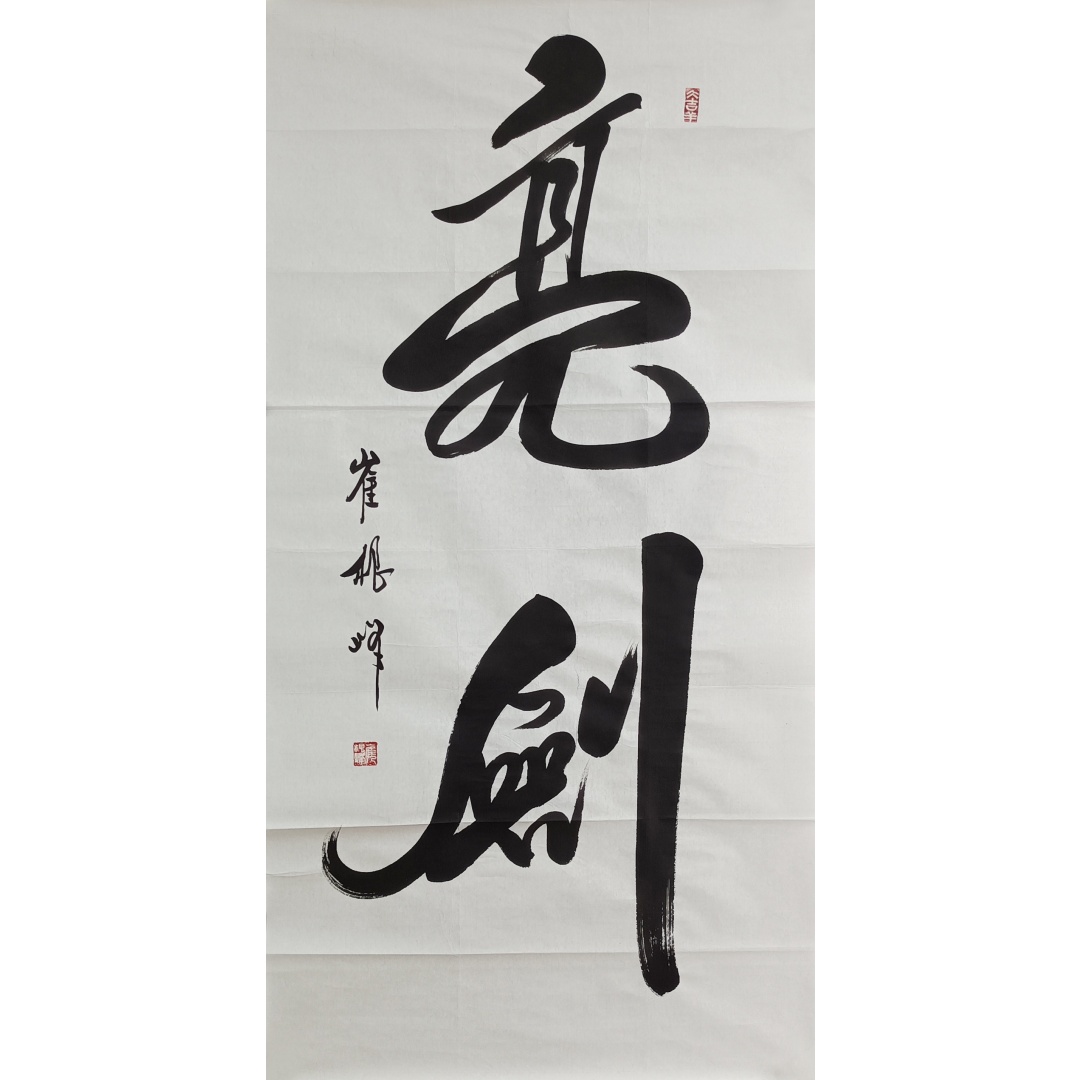 亮劍
崔根峰